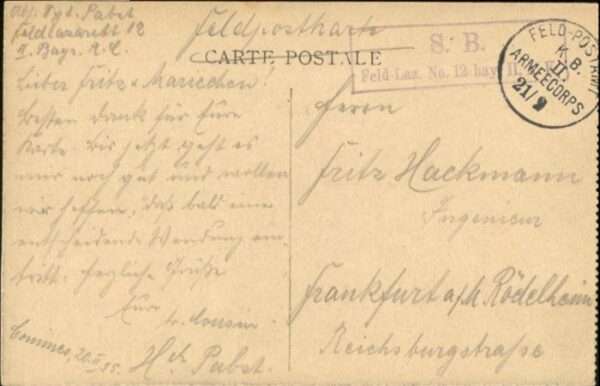 Abs. Fzt. Pabst
Feldlazarett 12
II. Bayr. A.C.
Feldpostkarte
CARTE POSTALE
S. B.
Feld-Laz. No. 12 bay. II.
FELD-POSTAMT
K. B.
II.
ARMEECORPS
21/2
Lieber Fritz u. Mariechen!
Besten Dank für Eure
Karte. Bis jetzt geht es
mir noch gut und wollen
wir hoffen, daß bald eine
entscheidende Wendung ein-
tritt. Herzliche Grüße
Euer
tr. Cousin
Hch. Pabst.
Comines, 20.II.15.
Herrn
Fritz Hackmann
Ingenieur
Frankfurt a/M Rödelheim
Reichsburgstraße